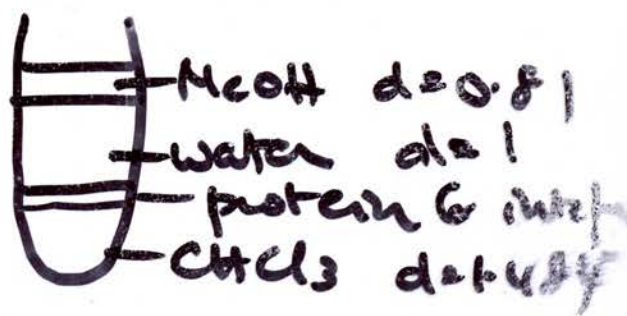 MeOH d=0.81
water d=1
protein @ interf
CHCl3 d=1.484